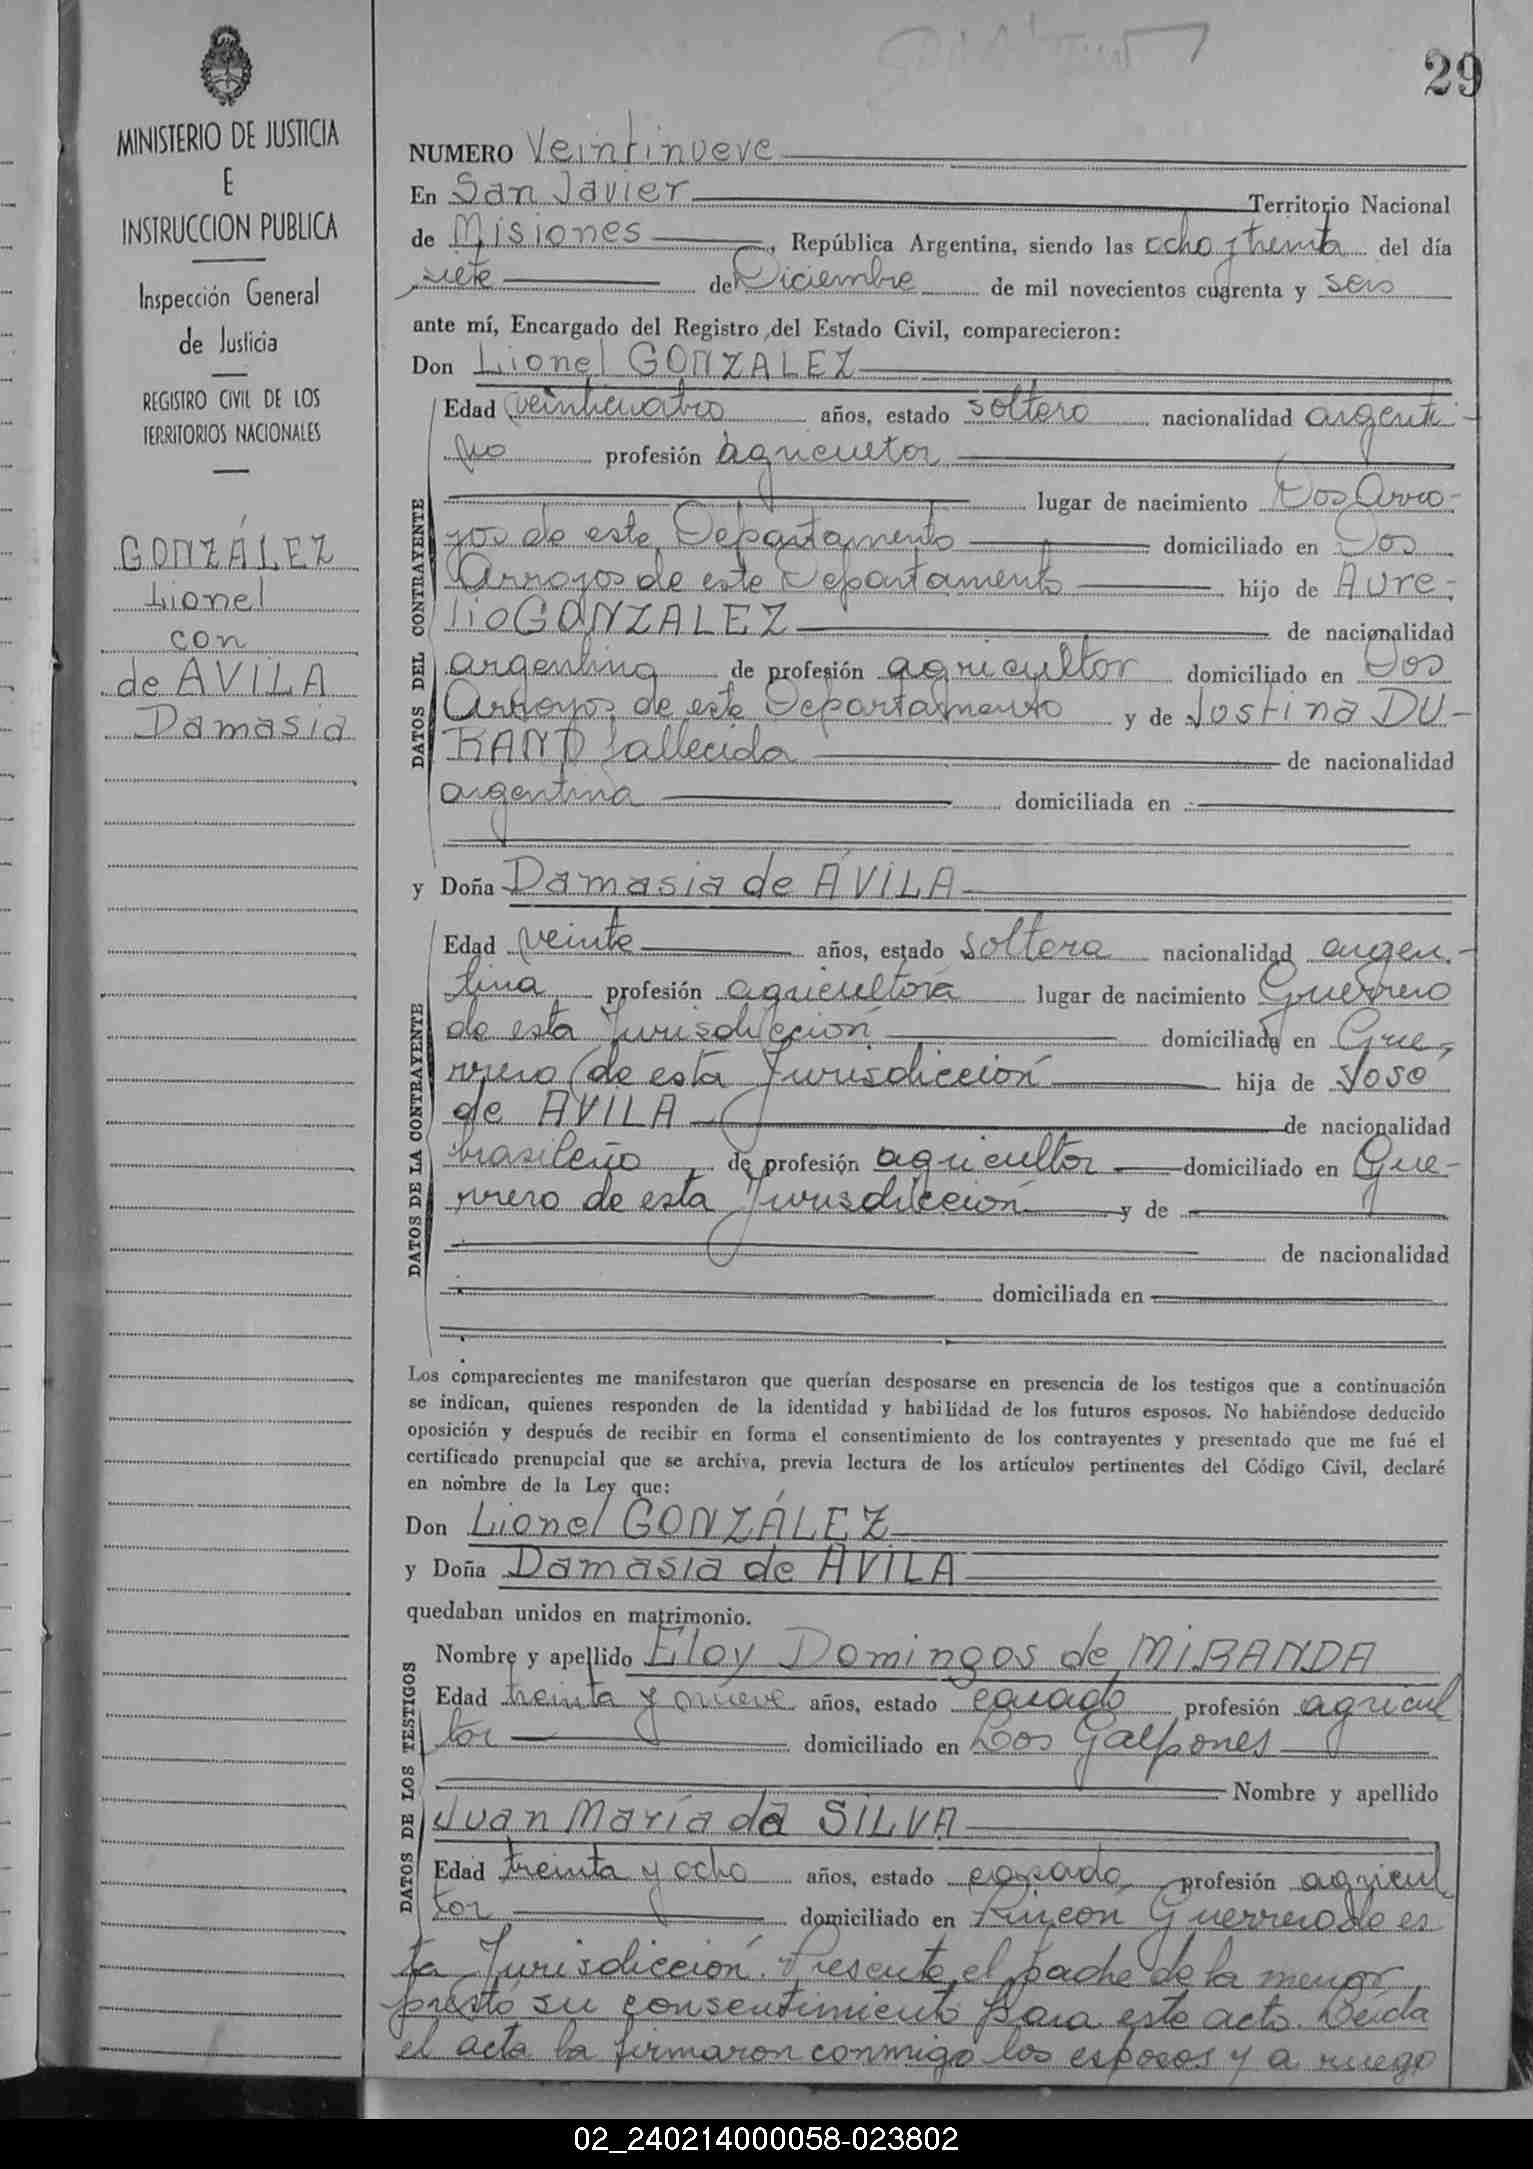 29
MINISTERIO DE JUSTICIA
E
INSTRUCCION PUBLICA
Inspección General
de Justicia
REGISTRO CIVIL DE LOS
TERRITORIOS NACIONALES
GONZÁLEZ
Lionel
con
de AVILA
Damasia
NUMERO Veintinueve
En San Javier Territorio Nacional
de Misiones, República Argentina, siendo las ocho y treinta del día
siete de Diciembre de mil novecientos cuarenta y seis
ante mí, Encargado del Registro del Estado Civil, comparecieron:
Don Lionel GONZALEZ
DATOS DEL CONTRAYENTE
Edad veinticuatro años, estado soltero nacionalidad argenti-
no profesión agricultor
lugar de nacimiento Dos Arro-
yos de este Departamento domiciliado en Dos
Arroyos de este Departamento hijo de Aure-
lio GONZALEZ de nacionalidad
argentina de profesión agricultor domiciliado en Dos
Arroyos de este Departamento y de Justina DU-
RAND fallecida de nacionalidad
argentina domiciliada en
y Doña Damasia de ÁVILA
DATOS DE LA CONTRAYENTE
Edad veinte años, estado soltera nacionalidad argen-
tina profesión agricultora lugar de nacimiento Guerrero
de esta Jurisdicción domiciliada en Gue-
rrero de esta Jurisdicción hija de José
de AVILA de nacionalidad
brasileño de profesión agricultor domiciliado en Gue-
rrero de esta Jurisdicción y de
de nacionalidad
domiciliada en
Los comparecientes me manifestaron que querían desposarse en presencia de los testigos que a continuación
se indican, quienes responden de la identidad y habilidad de los futuros esposos. No habiéndose deducido
oposición y después de recibir en forma el consentimiento de los contrayentes y presentado que me fué el
certificado prenupcial que se archiva, previa lectura de los artículos pertinentes del Código Civil, declaré
en nombre de la Ley que:
Don Lionel GONZÁLEZ
y Doña Damasia de AVILA
quedaban unidos en matrimonio.
DATOS DE LOS TESTIGOS
Nombre y apellido Eloy Domingos de MIRANDA
Edad treinta y nueve años, estado casado profesión agricul
tor domiciliado en Los Galpones
Nombre y apellido
Juan María da SILVA
Edad treinta y ocho años, estado casado profesión agricul
tor domiciliado en Rincón Guerrero de es
ta Jurisdicción. Presente el padre de la menor
prestó su consentimiento para este acto. Leída
el acta la firmaron conmigo los esposos y a ruego
02_240214000058-023802